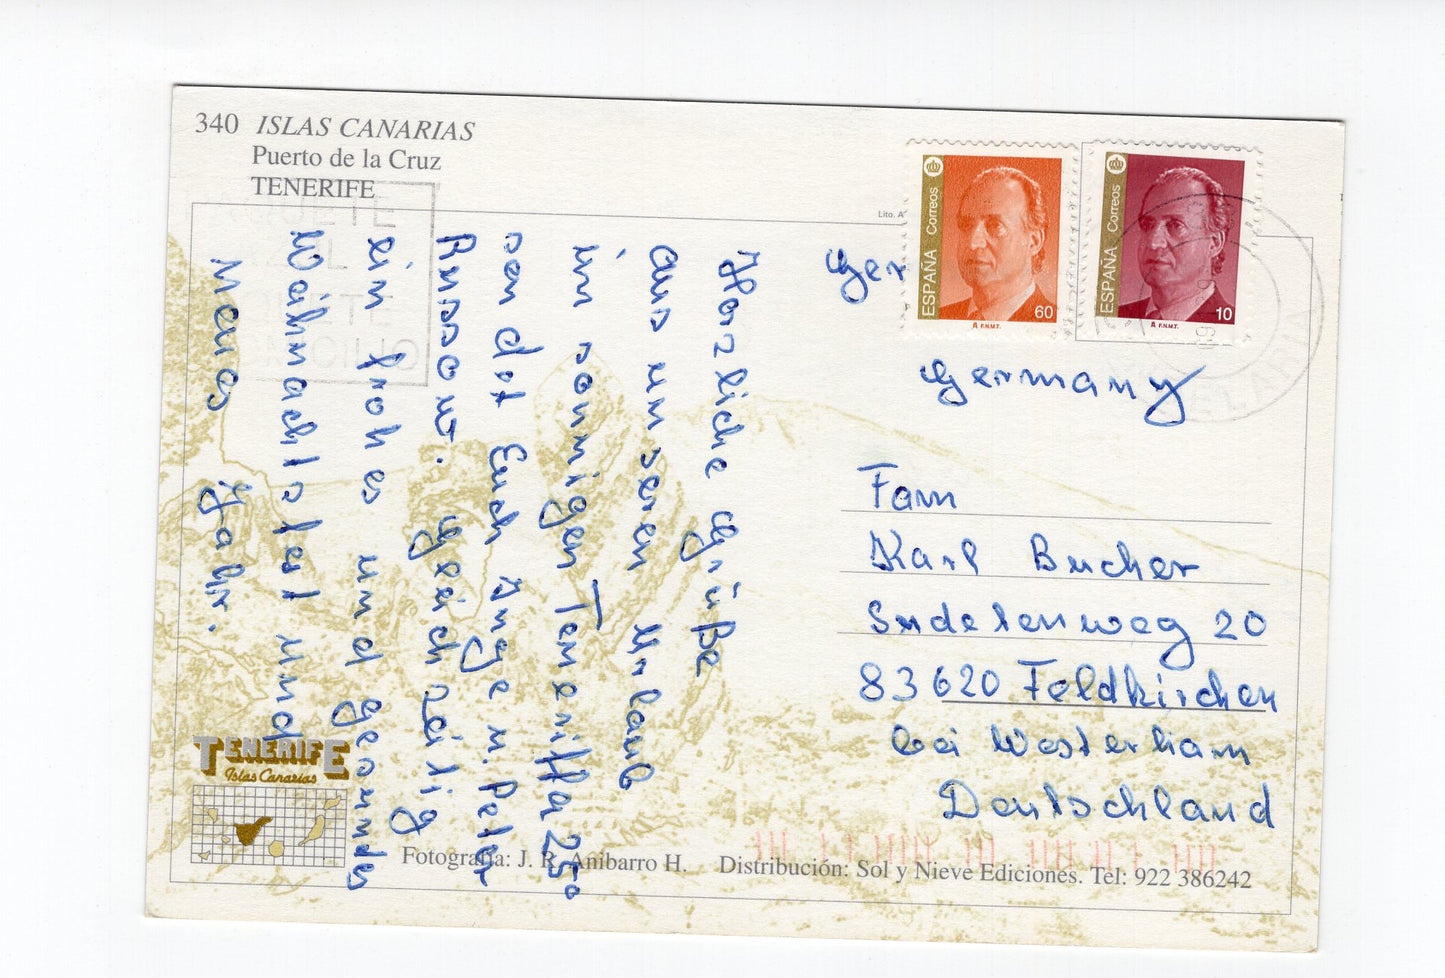 340 ISLAS CANARIAS
Puerto de la Cruz
TENERIFE
Lito. A
ESPAÑA Correos
60
F.N.M.T.
ESPAÑA Correos
10
F.N.M.T.
Herzliche Grüße
aus unseren Urlaub
im sonnigen Teneriffa 25°
sendet Euch Inge u. Peter
Russow. Gleichzeitig
ein frohes und gesundes
Weihnachtsfest und
Neues Jahr.
Ger
Germany
Fam
Karl Bucher
Sudetenweg 20
83620 Feldkirchen
bei Westerham
Deutschland
TENERIFE
Islas Canarias
Fotografía: J. R. Anibarro H. Distribución: Sol y Nieve Ediciones. Tel: 922 386242